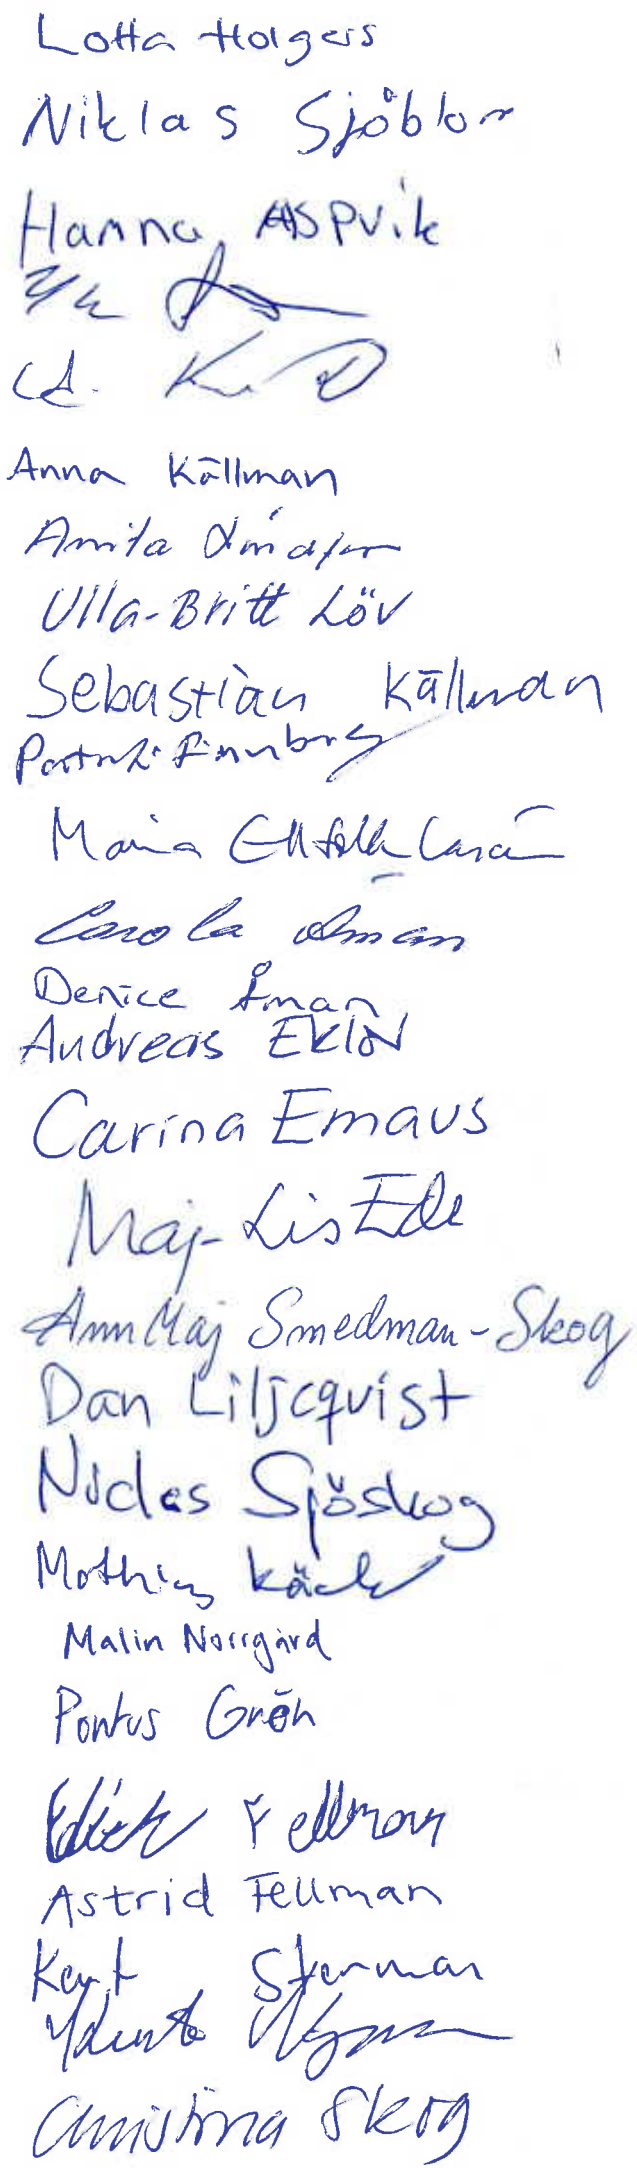 Lotta Holgers
Niklas Sjöblom
Hanna Aspvik
Anna Källman
Anita
Ulla-Britt Löv
Sebastian Källman
Finnberg
Maria
Carola Åman
Denice Åman
Andreas Eklöv
Carina Emaus
Maj-Lis Ede
AnnMaj Smedman-Skog
Dan Liljeqvist
Niclas Sjöskog
Mathias Käck
Malin Norrgård
Pontus Grön
Fellman
Astrid Fellman
Kent Stenman
Christina Skog